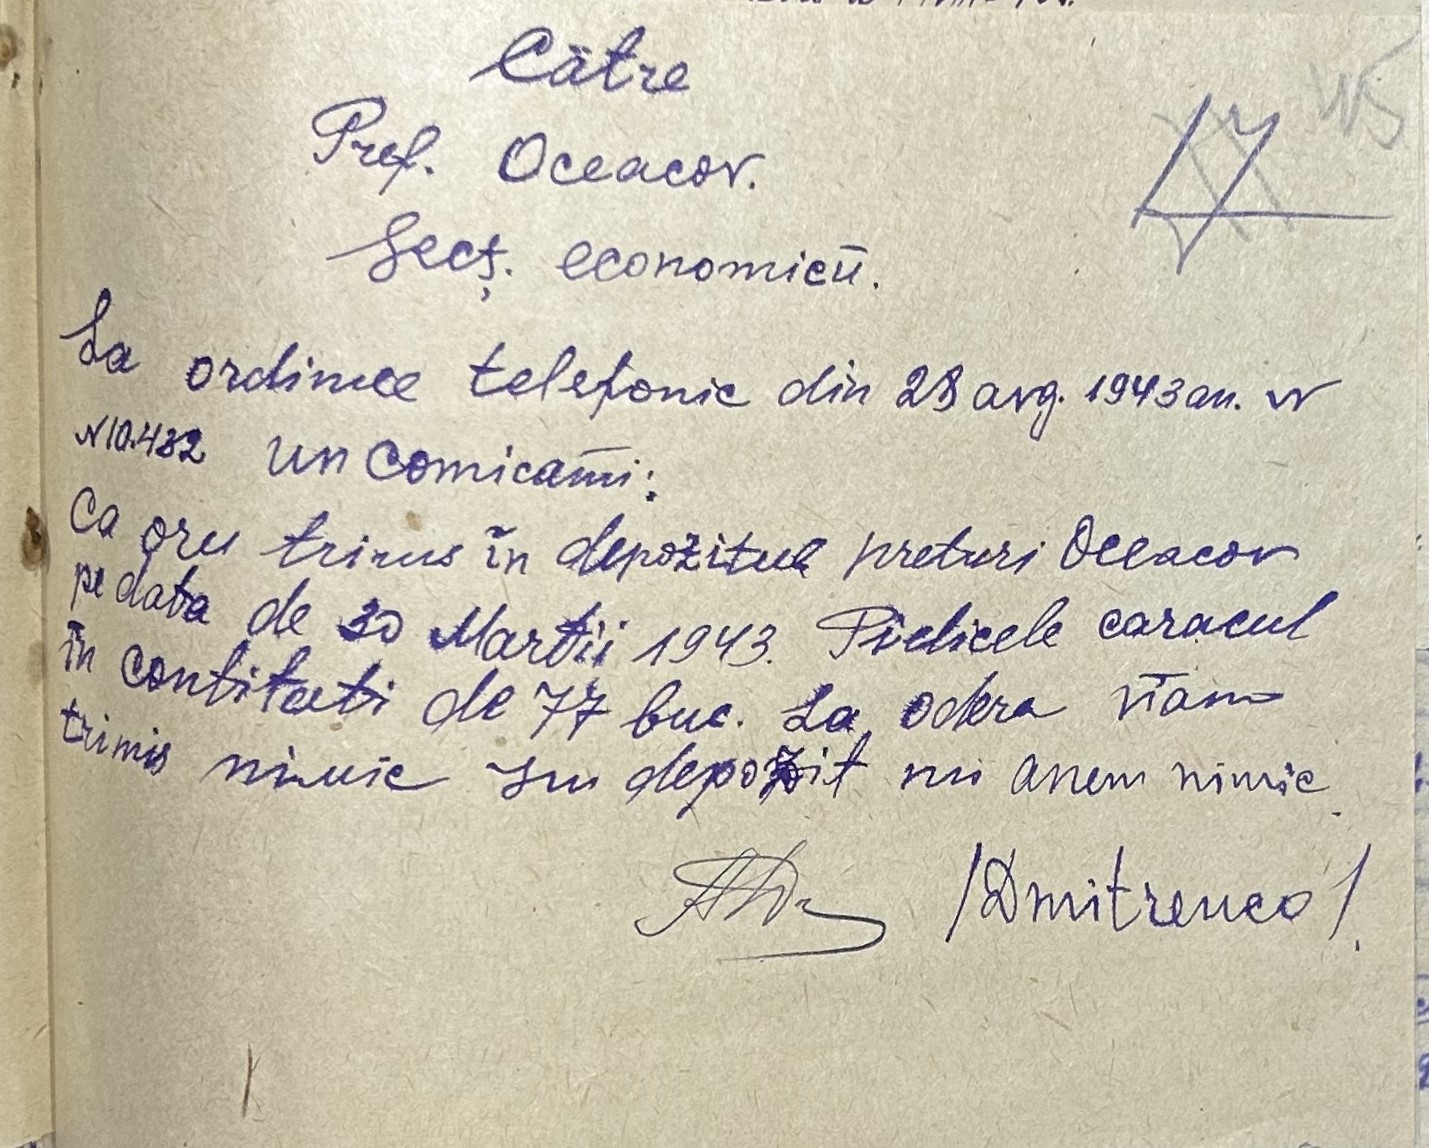 Cätre
Pref. Oceacov.
Secṣ. economicii.
17
La ordinee telefonic din 28 avg. 1943 an.
N10.432 un comicami:
Ca oru trimis în depozitul preturi Oceacov
pe data de 30 Martii 1943. Pielicele caracul
în contitati de 77 buc. La odera
trimis nimic depozit nu anem nimic.
/Dmitrenco/.